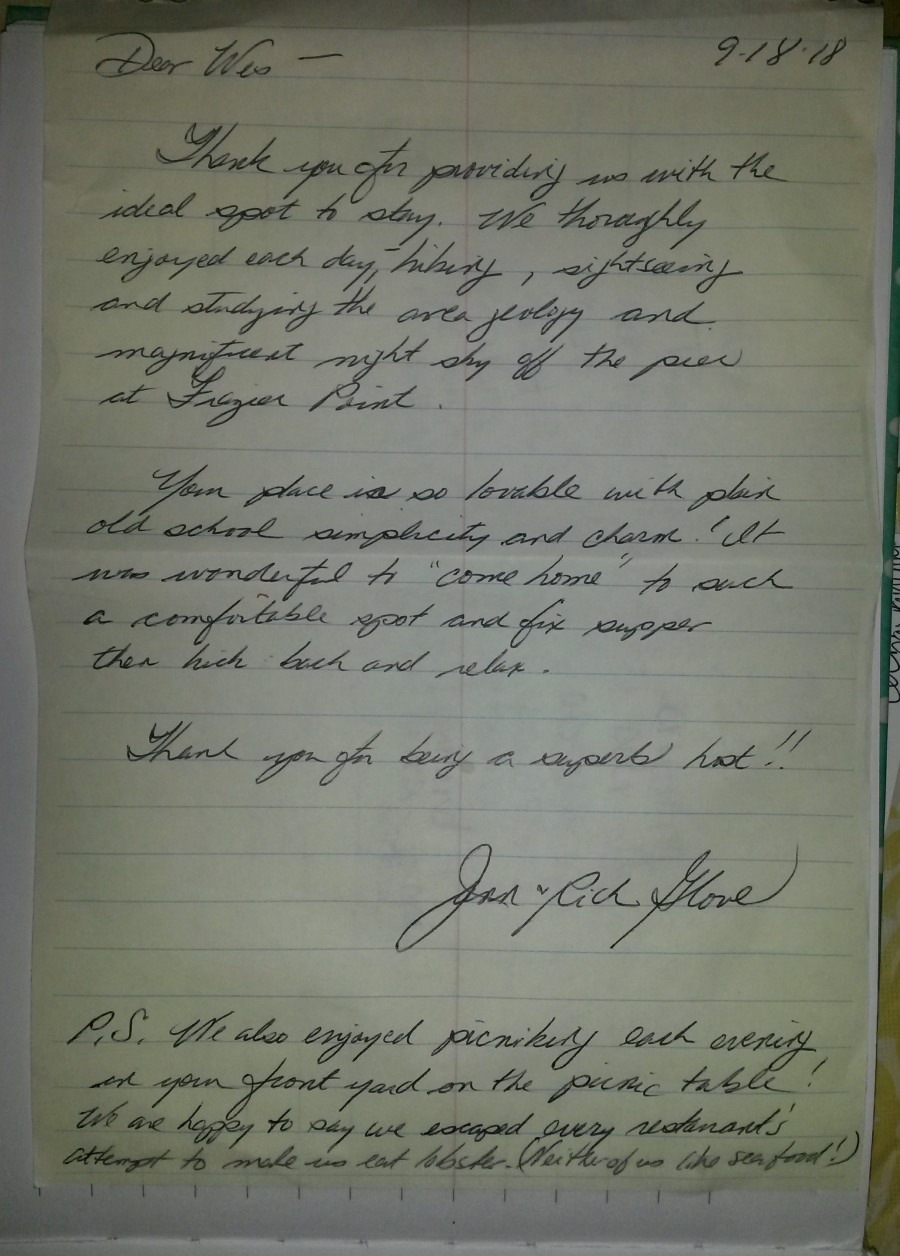 Dear Wes — 9-18-18
Thank you for providing us with the
ideal spot to stay. We thoroghly
enjoyed each day, hiking, sightseeing
and studying the area geology and
magnificent night sky off the pier
at Frazier Point.
Your place is so lovable with plain
old school simplicity and charm! It
was wonderful to "come home" to such
a comfortable spot and fix supper
then kick back and relax.
Thank you for being a superb host!!
Jan & Rich Glove
P.S. We also enjoyed picniking each evening
in your front yard on the picnic table!
We are happy to say we escaped every restaurant's
attempt to make us eat lobster. (Neither of us like seafood!)